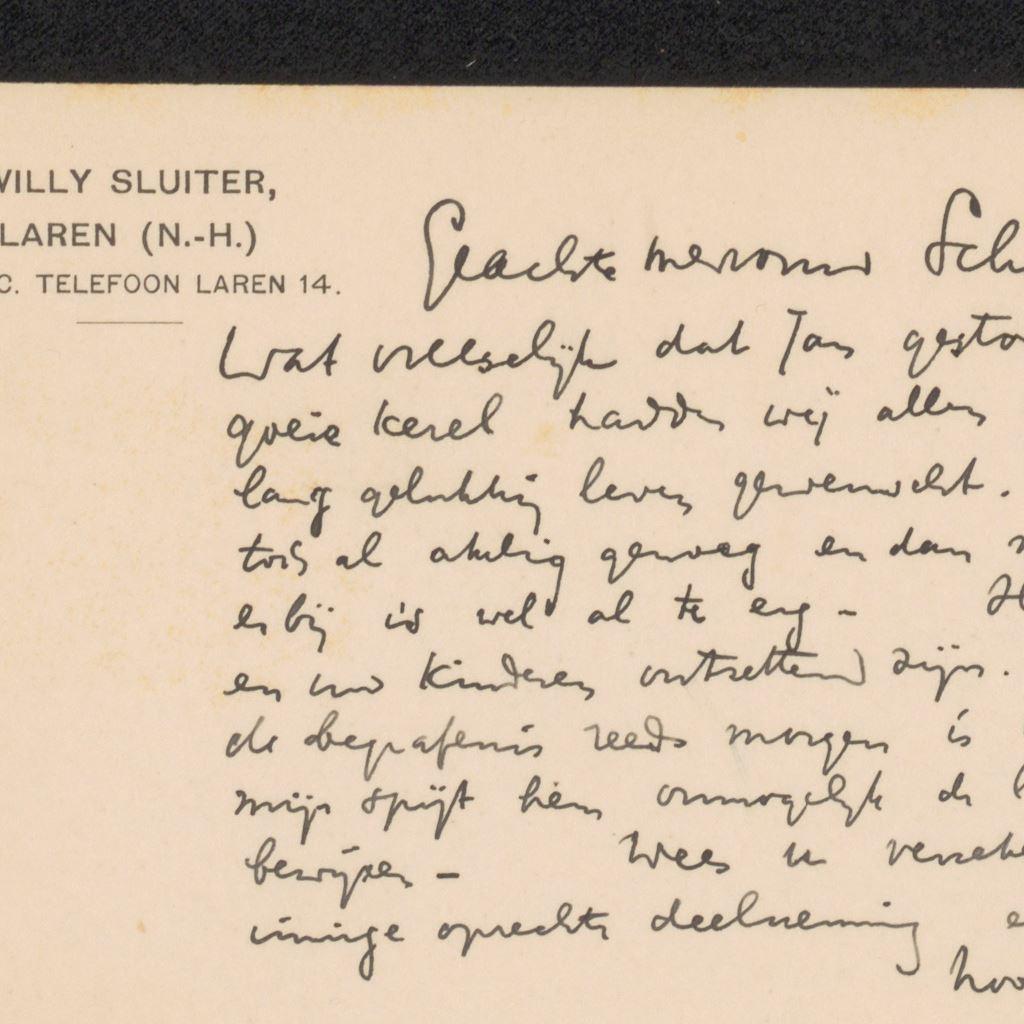 WILLY SLUITER,
LAREN (N.-H.)
C. TELEFOON LAREN 14.
Geachte mevrouw Sch
Wat vreeselijk dat Jan gesto
goeie kerel hadden wij allen
lang gelukkig leven gewenscht.
toch al akelig genoeg en dan
er bij is wel al te erg - H
en uw kinderen ontzettend zijn.
de begrafenis reeds morgen is
mijn spijt hem onmogelijk de l
bewijzen -
Wees u verzeke
innige oprechte deelneming e
hoo